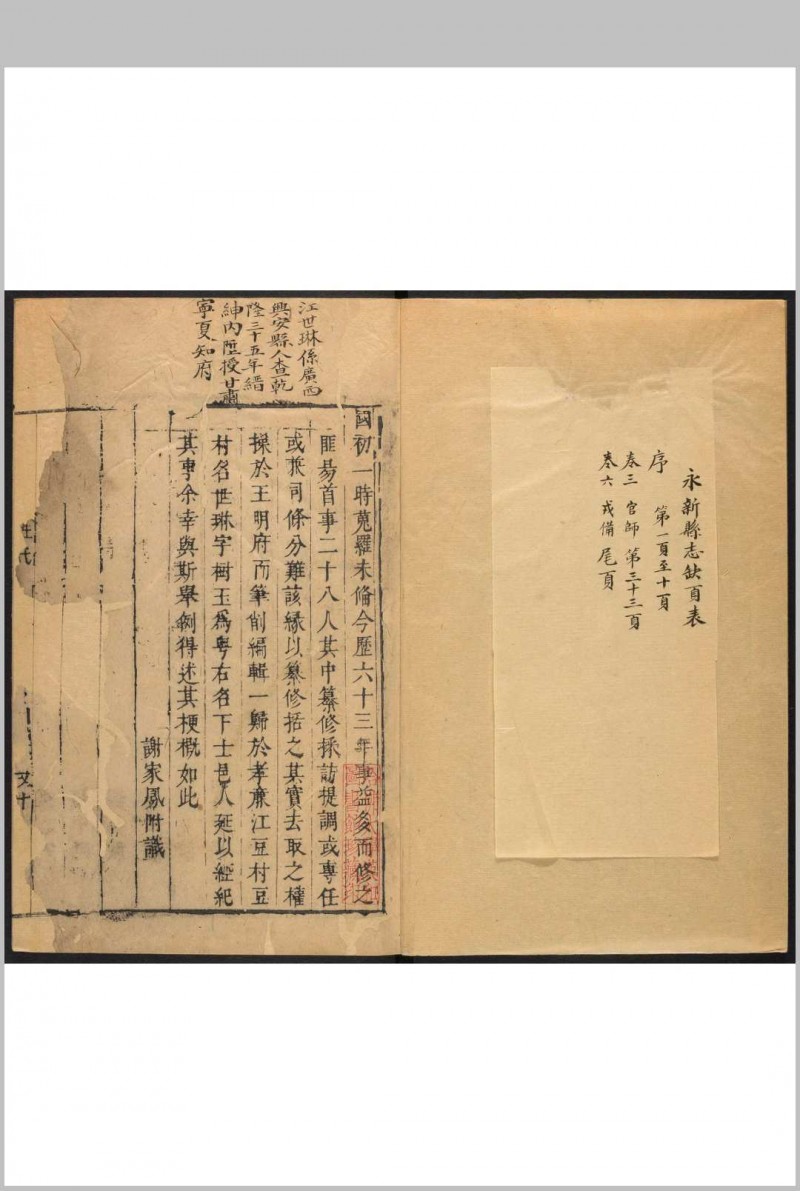 永新縣志缺頁表
序 第一頁至十頁
卷三 官師 第三十三頁
卷六 戎備 尾頁
江世琳係廣西
興安縣人查乾
隆三十五年縉
紳內歷授甘肅
寧夏知府
國初一時蒐羅未備今歷六十三年事益多而修之
匪易首事二十八人其中纂修採訪提調或專任
或兼司條分難該緣以纂修括之其實去取之權
操於王明府而筆削編輯一歸於孝亷江豆村豆
村名世琳字樹玉為粤右名下士邑人延以經紀
其事余幸與斯舉例得述其梗概如此
謝家鳳附識